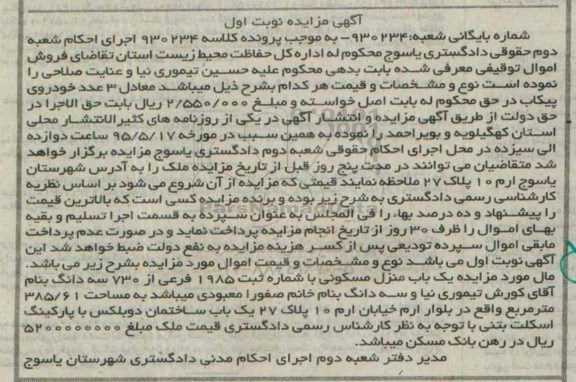 آگهی مزایده نوبت اول
شماره بایگانی شعبه: ۹۳۰۲۳۴- به موجب پرونده کلاسه ۹۳۰۲۳۴ اجرای احکام شعبه
دوم حقوقی دادگستری یاسوج محکوم له اداره کل حفاظت محیط زیست استان تقاضای فروش
اموال توقیفی معرفی شده بابت بدهی محکوم علیه حسین تیموری نیا و عنایت صلاحی را
نموده است نوع و مشخصات و قیمت هر کدام بشرح ذیل میباشد معادل ۳ عدد خودروی
پیکاب در حق محکوم له بابت اصل خواسته و مبلغ ۲/۵۵۰/۰۰۰ ریال بابت حق الاجرا در
حق دولت از طریق آگهی مزایده و انتشار آگهی در یکی از روزنامه های کثیرالانتشار محلی
استان کهگیلویه و بویراحمد را نموده به همین سبب در مورخه ۹۵/۵/۱۷ ساعت دوازده
الی سیزده در محل اجرای احکام حقوقی شعبه دوم دادگستری یاسوج مزایده برگزار خواهد
شد متقاضیان می توانند در مدت پنج روز قبل از تاریخ مزایده ملک را به آدرس شهرستان
یاسوج ارم ۱۰ پلاک ۲۷ ملاحظه نمایند قیمتی که مزایده از آن شروع می شود بر اساس نظریه
کارشناسی رسمی دادگستری به شرح زیر بوده و برنده مزایده کسی است که بالاترین قیمت
را پیشنهاد و ده درصد بها، را فی المجلس به عنوان سپرده به قسمت اجرا تسلیم و بقیه
بهای اموال را ظرف ۳۰ روز از تاریخ انجام مزایده پرداخت نماید و در صورت عدم پرداخت
مابقی اموال سپرده تودیعی پس از کسر هزینه مزایده به نفع دولت ضبط خواهد شد این
آگهی نوبت اول می باشد نوع و مشخصات و قیمت اموال مورد مزایده بشرح زیر می باشد.
مال مورد مزایده یک باب منزل مسکونی با شماره ثبت ۱۹۸۵ فرعی از ۷۳۰ سه دانگ بنام
آقای کورش تیموری نیا و سه دانگ بنام خانم صفورا معبودی میباشد به مساحت ۳۸۵/۶۱
مترمربع واقع در بلوار ارم خیابان ارم ۱۰ پلاک ۲۷ یک باب ساختمان دوبلکس با پارکینگ
اسکلت بتنی با توجه به نظر کارشناس رسمی دادگستری قیمت ملک مبلغ ۵۲۰۰۰۰۰۰۰۰
ریال در رهن بانک مسکن میباشد.
مدیر دفتر شعبه دوم اجرای احکام مدنی دادگستری شهرستان یاسوج